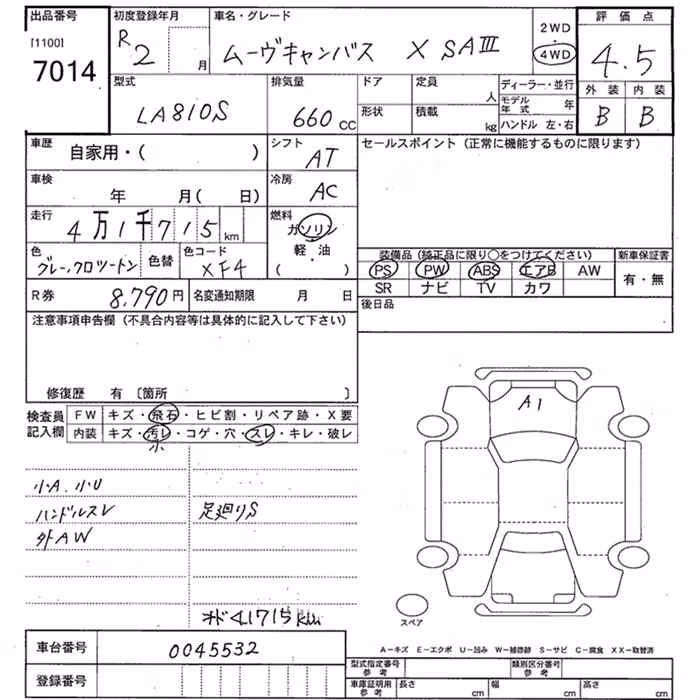 出品番号 初度登録年月 車名・グレード 評価点
[1100] R2 月 ムーヴキャンバス X SAⅢ 2WD・4WD 4.5
7014
型式 排気量 ドア 定員 ディーラー・並行 外装 内装
LA810S 660cc 人 モデル年式 年 B B
形状 積載 kg ハンドル 左・右
車歴 シフト セールスポイント (正常に機能するものに限ります)
自家用・( ) AT
車検 冷房
年 月(日) AC
走行 燃料
4万1千715km ガソリン
軽・油
( )
色 色替 色コード 装備品 (純正品に限り○をつけてください) 新車保証書
グレー、クロツートン XF4 PS PW ABS エアB AW 有・無
SR ナビ TV カワ
R券 8,790円 名変通知期限 月 日 後日品
注意事項申告欄 (不具合内容等は具体的に記入して下さい)
修復歴 有 〔箇所 〕
検査員記入欄 FW キズ・飛石・ヒビ割・リペア跡・X要
内装 キズ・汚レ・コゲ・穴・スレ・キレ・破レ
小
A1
小A.小U
ハンドルスレ 足廻りS
外AW
オド41715km
スペア
A-キズ E-エクボ U-凹み W-補修跡 S-サビ C-腐食 XX-取替済
車台番号 0045532
型式指定番号 参考 類別区分番号 参考
登録番号 車庫証明用 参考 長さ cm 幅 cm 高さ cm